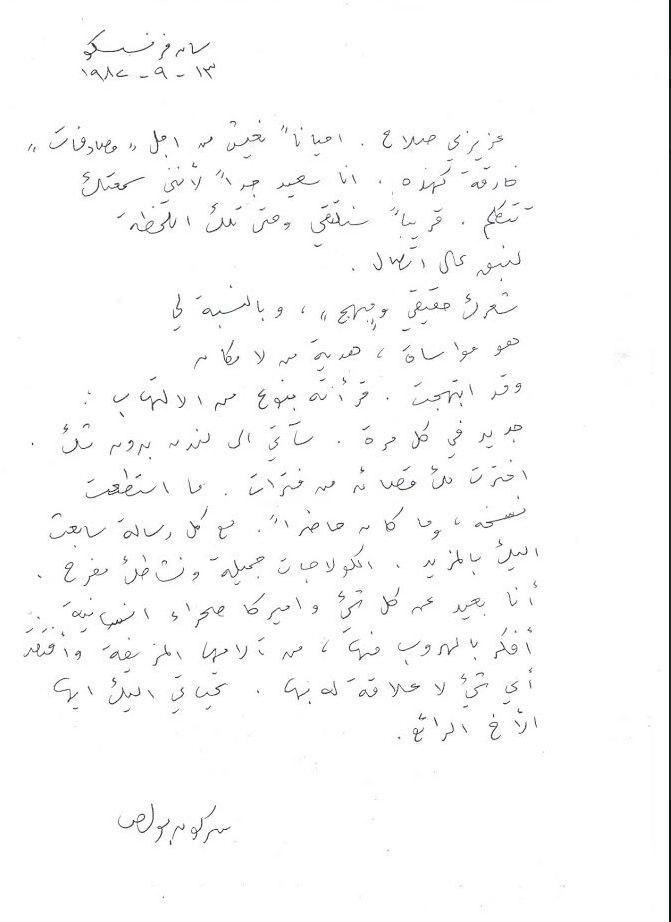 سان فرنسسكو
١٣ - ٩ - ١٩٨٧
عزيزي صلاح . احياناً نعيش من اجل " مصادفات "
خارقة كهذه . انا سعيد جداً لأنني سمعتك
تتكلم . قريباً سنلتقي وحتى تلك اللحظة
لنبق على اتصال .
شعرك حقيقي و"مبهج" ، وبالنسبة لي
هو مواساة ، هدية من لا مكان
وقد ابتهجت . قرأته بنوع من الالتهاب :
جديد في كل مرة . سآتي الى لندن بدون شك .
اخترت لك قصائد من فترات . ما استطعت
نسخه ، وما كان حاضراً . مع كل رسالة سأبعث
اليك بالمزيد . الكولاجات جميلة ونشاطك مفرح .
أنا بعيد عن كل شيء واميركا صحراء انسانية .
أفكر بالهروب منها ، من آلامها المزيفة وأفتقد
أي شيء لا علاقة له بها . تحياتي اليك ايها
الأخ الرائع .
سركون بولص